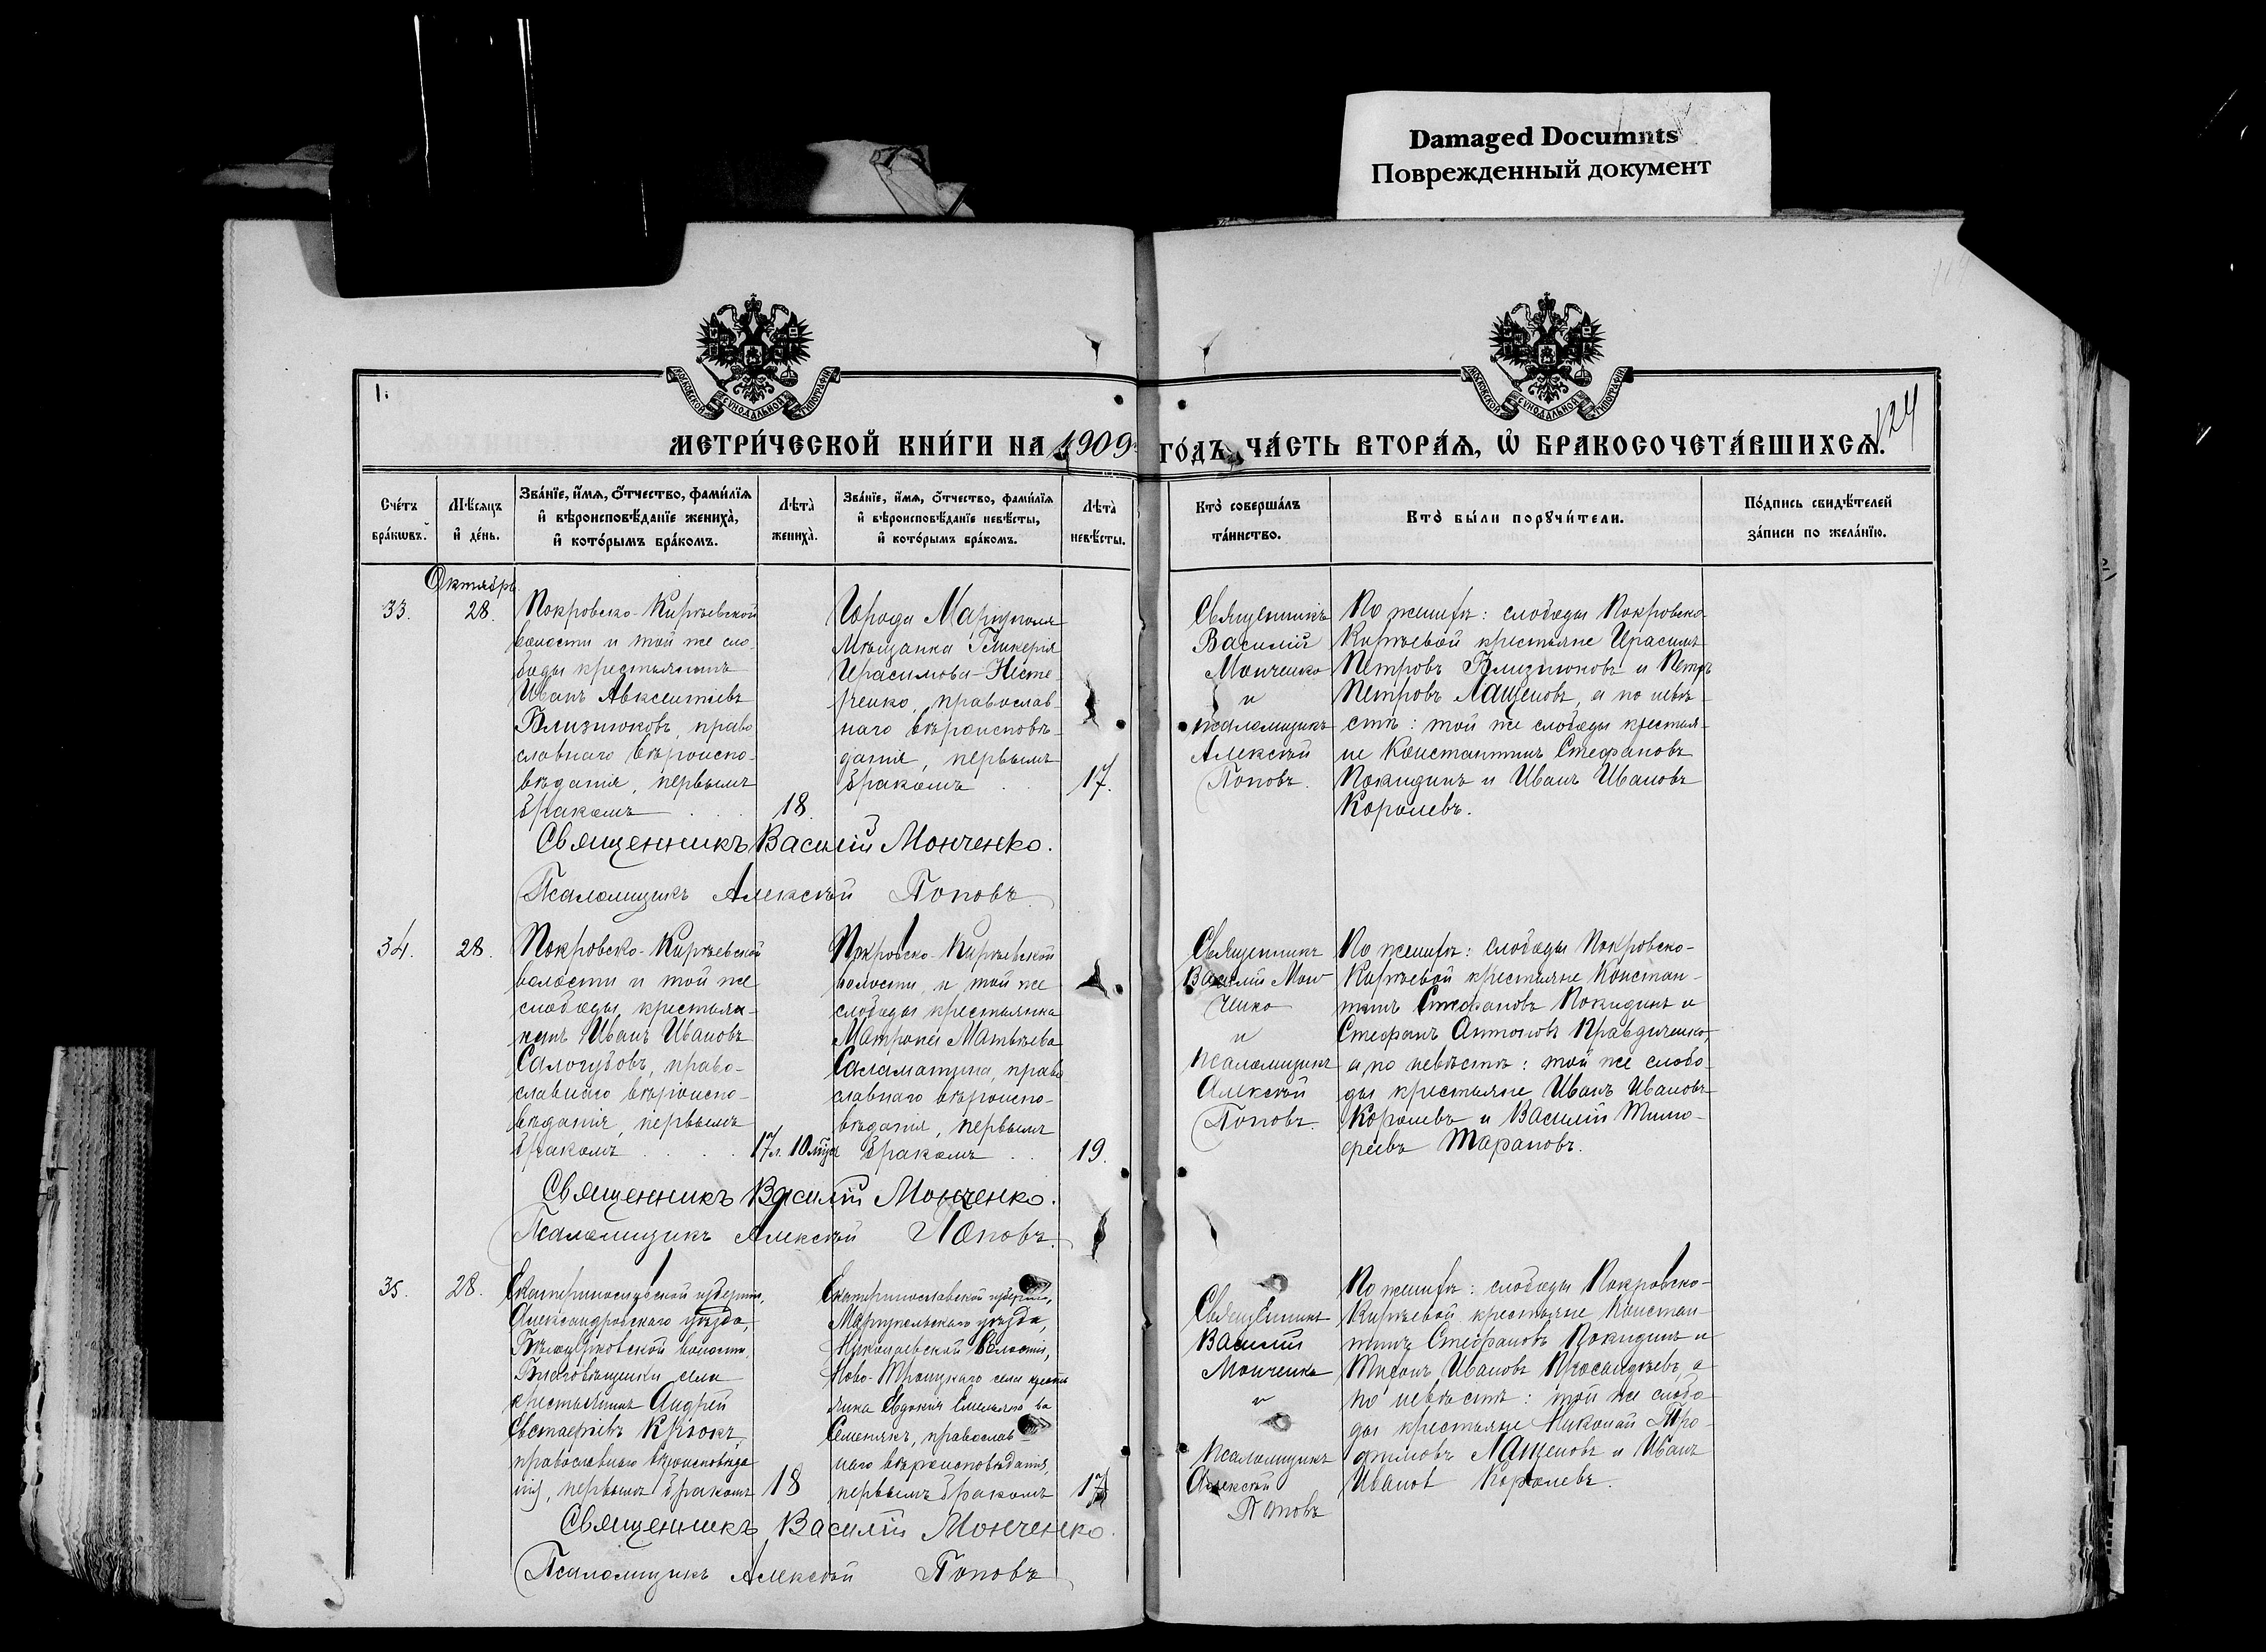 Damaged Documnts
Поврежденный документ
1.
124
МЕТРИ́ЧЕСКОЙ КНИ́ГИ НА 1909 ГО́ДЪ, ЧА́СТЬ ВТОРА́Я, Ѡ҆ БРАКОСОЧЕТА́ВШИХСЯ.
Сче́тъ
бра́кѡвъ.
Мѣ́сяцъ
и҆ де́нь.
Зва́нїе, и҆́мѧ, ѻ҆́тчество, фами́лїѧ
и҆ вѣроисповѣ́данїе жениха̀,
и҆ кото́рымъ бра́комъ.
Лѣта̀
жениха̀.
Зва́нїе, и҆́мѧ, ѻ҆́тчество, фами́лїѧ
и҆ вѣроисповѣ́данїе невѣ́сты,
и҆ кото́рымъ бра́комъ.
Лѣта̀
невѣ́сты.
Кто̀ соверша́лъ
та́инство.
Кто̀ бы́ли порꙋчи́тели.
По́дпись свидѣ́телей
за́писи по жела́нїю.
Октябрь
33.
28.
Покровско-Кирѣевской
волости и той же сло-
боды крестьянинъ
Иванъ Авксентіевъ
Близнюковъ, право
славнаго вѣроиспо-
вѣданія, первымъ
бракомъ
18.
Города Маріуполя
мѣщанка Гликерія
Герасимова Несте
ренко, православ-
наго вѣроисповѣ-
данія, первымъ
бракомъ
17.
Священникъ
Василій
Монченко
и
псаломщикъ
Алексѣй
Поповъ.
По женихѣ: слободы Покровско-
Кирѣевой крестьяне Герасимъ
Петровъ Близнюковъ и Петръ
Петровъ Лащеновъ, а по невѣ-
стѣ: той же слободы крестья-
не Константинъ Стефановъ
Покидинъ и Иванъ Ивановъ
Королевъ.
Священникъ Василій Монченко.
Псаломщикъ Алексѣй Поповъ
34.
28.
Покровско-Кирѣевской
волости и той же
слободы, крестьяни-
нинъ Иванъ Ивановъ
Салогубовъ, право-
славнаго вѣроиспо-
вѣданія, первымъ
бракомъ
17 л. 10 мѣс
Покровско-Кирѣевской
волости, и той же
слободы крестьянка
Матрона Матвѣева
Саламатина, право
славнаго вѣроиспо-
вѣданія, первымъ
бракомъ
19.
Священникъ
Василій Мон-
ченко
и
псаломщикъ
Алексѣй
Поповъ.
По женихѣ: слободы Покровско-
Кирѣевой крестьяне Констан-
тинъ Стефановъ Покидинъ и
Стефанъ Антоновъ Правдиченко,
а по невѣстѣ: той же слобо
ды крестьяне Иванъ Ивановъ
Королевъ и Василій Тимо-
феевъ Тарановъ.
Священникъ Василій Монченко.
Псаломщикъ Алексѣй Поповъ.
35.
28.
Екатеринославской губерніи,
Александровскаго уѣзда,
волости,
села
крестьянинъ Андрей
Евстафіевъ Крюкъ,
православнаго вѣроисповѣда
нія, первымъ бракомъ
18
Екатеринославской губерніи,
Маріупольскаго уѣзда,
Николаевской волости,
Ново-Троицкаго села крестья
янка Евдокія Емельяно ва
Семенякъ, православ-
наго вѣроисповѣданія,
первымъ бракомъ
17
Священникъ
Василій
Монченко
и
псаломщикъ
Алексѣй
Поповъ
По женихѣ: слободы Покровско-
Кирѣевой крестьяне Констан-
тинъ Стефановъ Покидинъ и
Тихонъ Ивановъ а
по невѣстѣ: той же слобо
ды крестьяне Николай Тро-
фимовъ Лащеновъ и Иванъ
Иванов Королевъ.
Священникъ Василій Монченко.
Псаломщикъ Алексѣй Поповъ